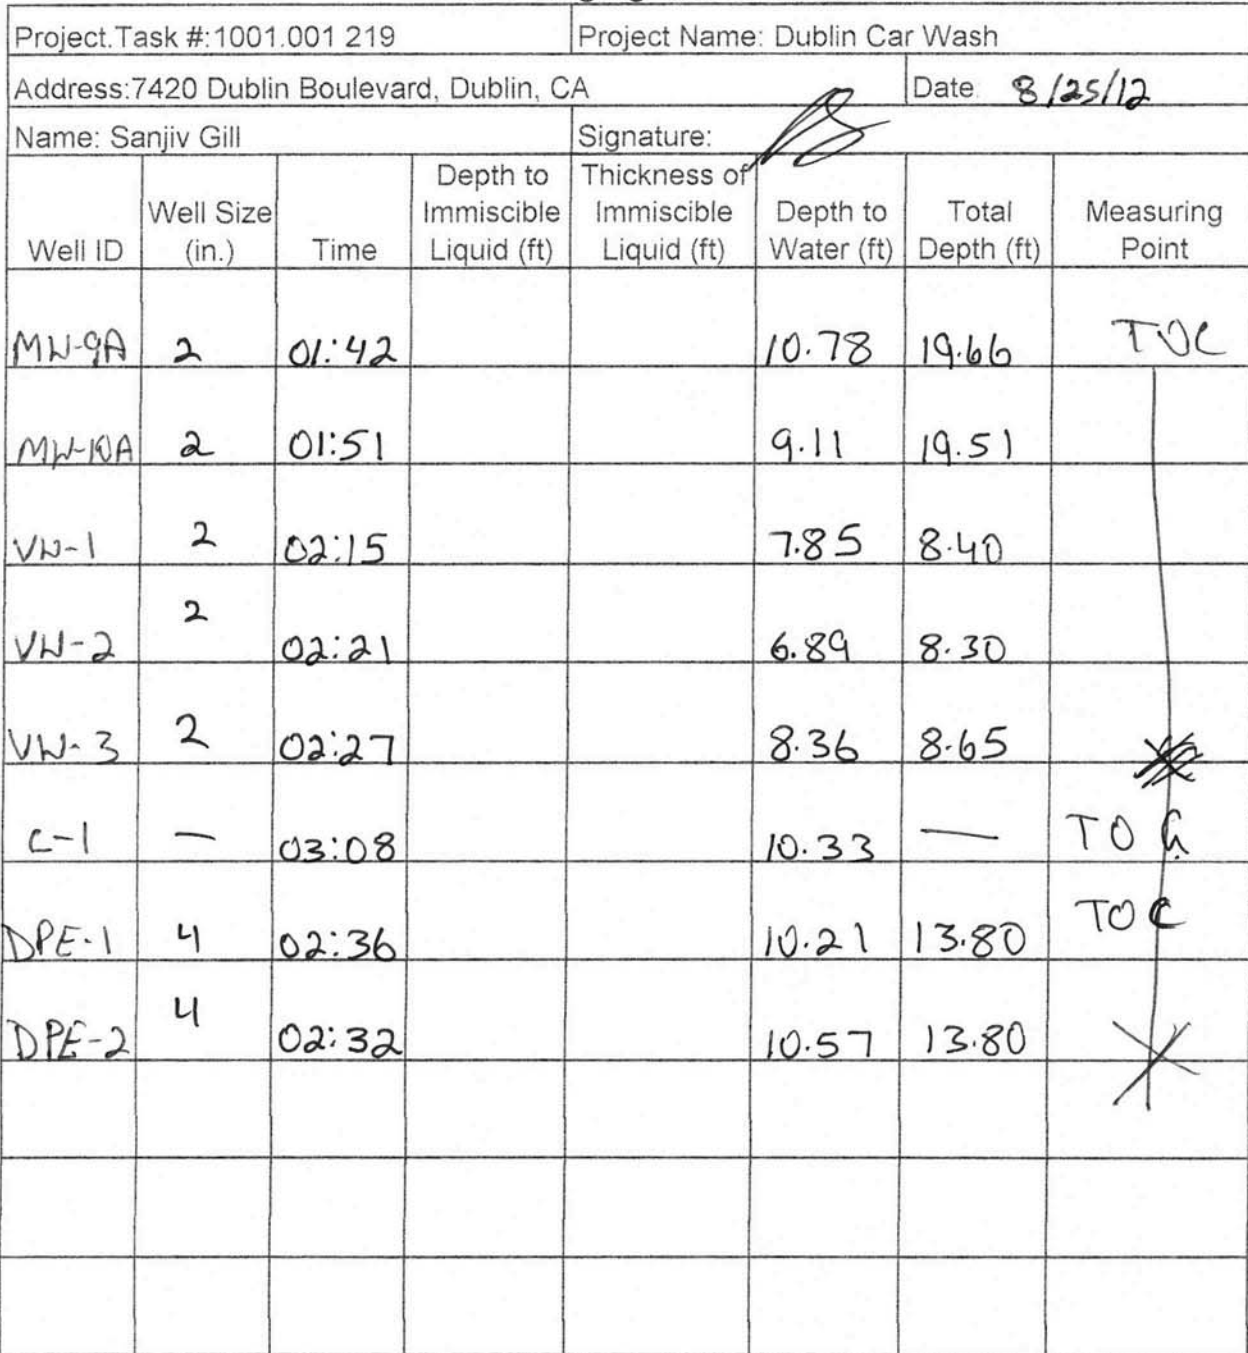 Project.Task #:1001.001 219 Project Name: Dublin Car Wash
Address:7420 Dublin Boulevard, Dublin, CA Date: 8/25/12
Name: Sanjiv Gill Signature:
Well ID Well Size (in.) Time Depth to Immiscible Liquid (ft) Thickness of Immiscible Liquid (ft) Depth to Water (ft) Total Depth (ft) Measuring Point
MW-9A 2 01:42 10.78 19.66 TOC
MW-10A 2 01:51 9.11 19.51
VW-1 2 02:15 7.85 8.40
VW-2 2 02:21 6.89 8.30
VW-3 2 02:27 8.36 8.65
C-1 — 03:08 10.33 — TO
DPE-1 4 02:36 10.21 13.80 TOC
DPE-2 4 02:32 10.57 13.80